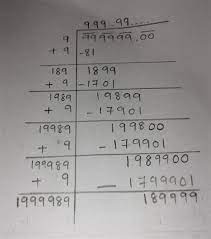 999.99.....
9 999999.00
+ 9 -81
189 1899
+ 9 -1701
1989 19899
+ 9 -17901
19989 199800
+ 9 -179901
199989 1989900
+ 9 -1799901
1999989 189999